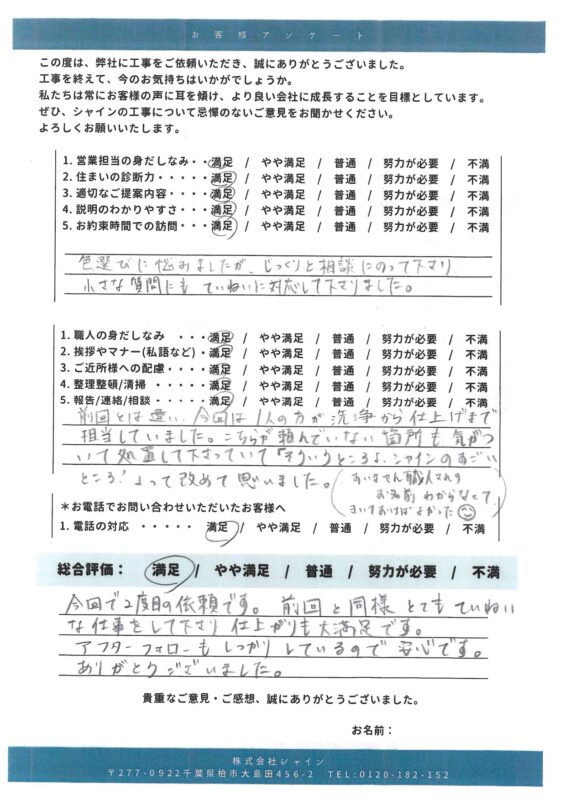 お客様アンケート
この度は、弊社に工事をご依頼いただき、誠にありがとうございました。
工事を終えて、今のお気持ちはいかがでしょうか。
私たちは常にお客様の声に耳を傾け、より良い会社に成長することを目標としています。
ぜひ、シャインの工事について忌憚のないご意見をお聞かせください。
よろしくお願いいたします。
1. 営業担当の身だしなみ・・満足 / やや満足 / 普通 / 努力が必要 / 不満
2. 住まいの診断力・・・・・満足 / やや満足 / 普通 / 努力が必要 / 不満
3. 適切なご提案内容・・・・満足 / やや満足 / 普通 / 努力が必要 / 不満
4. 説明のわかりやすさ・・・満足 / やや満足 / 普通 / 努力が必要 / 不満
5. お約束時間での訪問・・・満足 / やや満足 / 普通 / 努力が必要 / 不満
色選びに悩みましたが、じっくりと相談にのって下さり
小さな質問にも ていねいに対応して下さりました。
1. 職人の身だしなみ ・・・満足 / やや満足 / 普通 / 努力が必要 / 不満
2. 挨拶やマナー(私語など)・満足 / やや満足 / 普通 / 努力が必要 / 不満
3. ご近所様への配慮・・・・満足 / やや満足 / 普通 / 努力が必要 / 不満
4. 整理整頓/清掃 ・・・・満足 / やや満足 / 普通 / 努力が必要 / 不満
5. 報告/連絡/相談・・・・満足 / やや満足 / 普通 / 努力が必要 / 不満
前回とは違い、今回は1人の方が洗浄から仕上げまで
担当していました。こちらが頼んでいない箇所も気がつ
いて処置して下さっていて「そういうところよ、シャインのすごい
ところ!」って改めて思いました。
(すいません職人さんの
お名前わからなくて、
きいておけばよかった)
＊お電話でお問い合わせいただいたお客様へ
1. 電話の対応 ・・・・・ 満足 / やや満足 / 普通 / 努力が必要 / 不満
総合評価： 満足 / やや満足 / 普通 / 努力が必要 / 不満
今回で2度目の依頼です。前回と同様とてもていねい
な仕事をして下さり仕上がりも大満足です。
アフターフォローもしっかりしているので安心です。
ありがとうございました。
貴重なご意見・ご感想、誠にありがとうございました。
お名前：
株式会社シャイン
〒277-0922千葉県柏市大島田456-2 TEL:0120-182-152